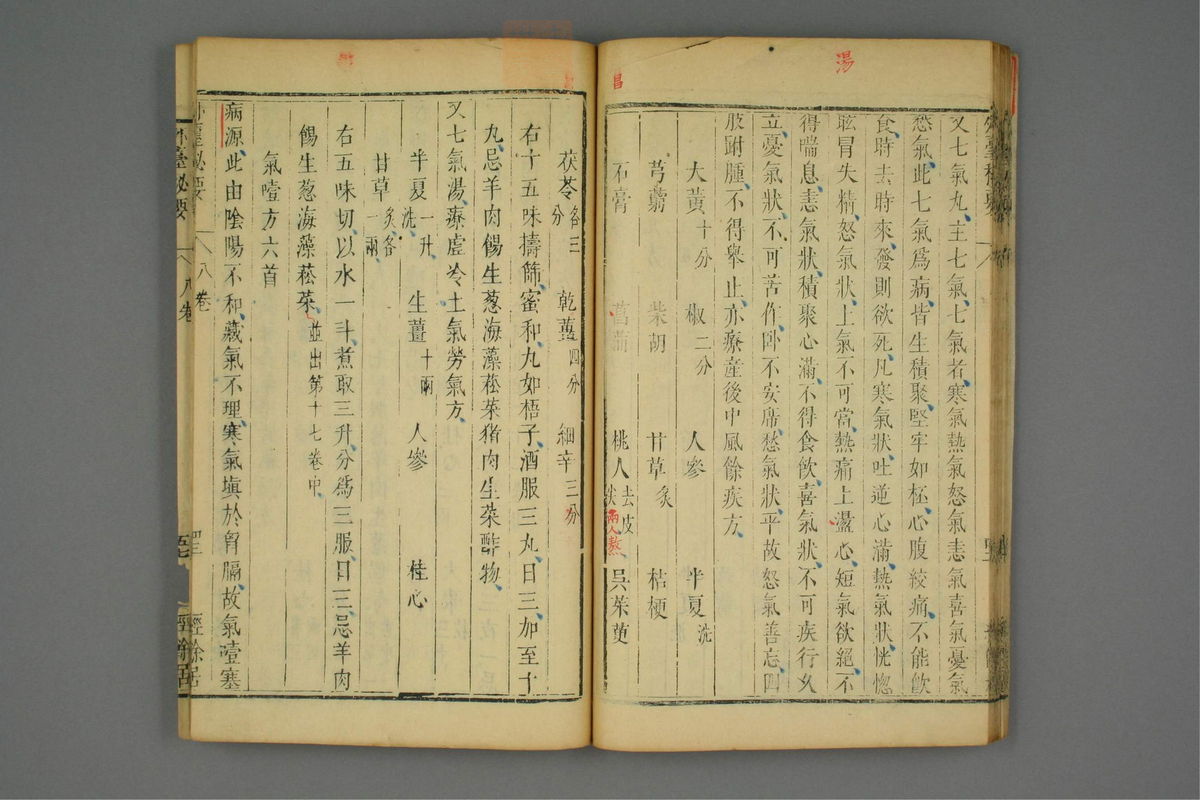 湯
昌
又七氣丸主七氣七氣者寒氣熱氣怒氣恚氣喜氣憂氣
愁氣此七氣爲病皆生積聚堅牢如柸心腹絞痛不能飲
食時去時來發則欲死凡寒氣狀吐逆心滿熱氣狀恍惚
眩冒失精怒氣狀上氣不可當熱痛上盪心短氣欲絕不
得喘息恚氣狀積聚心滿不得食飲喜氣狀不可疾行久
立憂氣狀不可苦作卧不安席愁氣狀平故怒氣善忘四
肢胕腫不得舉止亦療產後中風餘疾方
大黃十分 椒二分 人參 半夏洗
芎藭 柴胡 甘草炙 桔梗
石膏 菖蒲 桃人去皮 兩人熬 吳茱萸
茯苓各三分 乾薑四分 細辛三分
右十五味擣篩蜜和丸如梧子酒服三丸日三加至十
丸忌羊肉餳生葱海藻菘菜猪肉生菜酢物
又七氣湯療虛冷上氣勞氣方
半夏一升洗 生薑十兩 人參 桂心
甘草炙各一兩
右五味切以水一斗煮取三升分爲三服日三忌羊肉
餳生葱海藻菘菜並出第十七卷中
氣噎方六首
病源此由陰陽不和藏氣不理寒氣塡於胷膈故氣噎塞
外臺秘要 八卷 經餘居
外臺秘要 八卷 經餘居